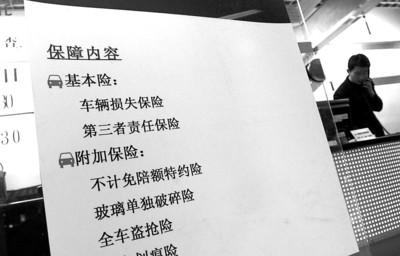 保障内容
基本险：
车辆损失保险
第三者责任保险
附加保险：
不计免陪额特约险
玻璃单独破碎险
全车盗抢险
划痕险
查
30
30